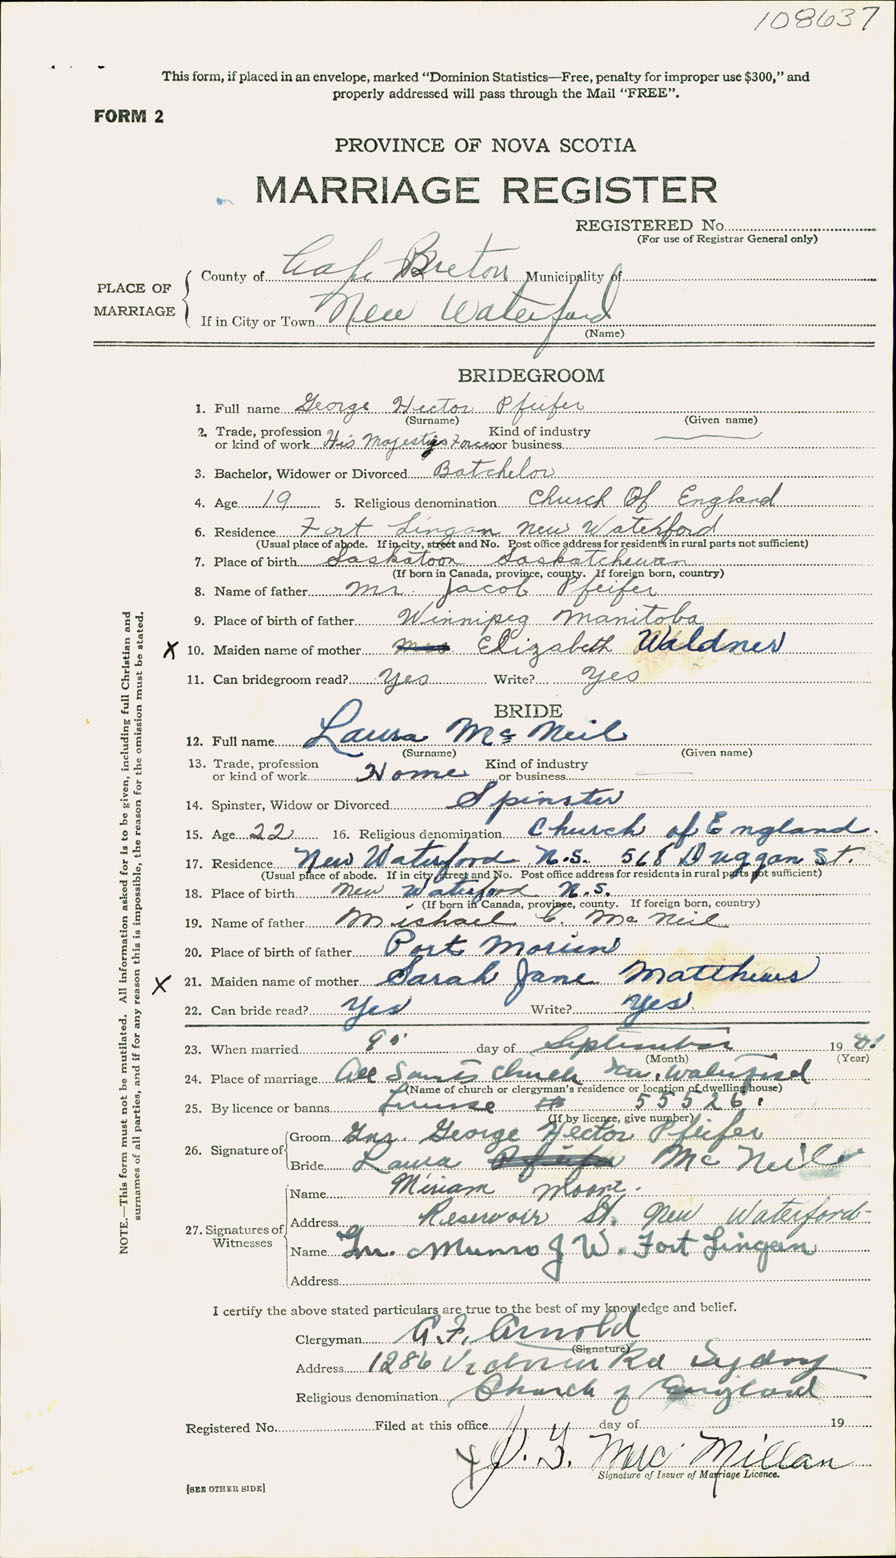 108637
This form, if placed in an envelope, marked “Dominion Statistics—Free, penalty for improper use $300,” and
properly addressed will pass through the Mail “FREE”.
FORM 2
PROVINCE OF NOVA SCOTIA
MARRIAGE REGISTER
REGISTERED No.
(For use of Registrar General only)
PLACE OF MARRIAGE
County of Cape Breton Municipality of
If in City or Town New Waterford
(Name)
BRIDEGROOM
1. Full name George Hector Pfeifer
(Surname) (Given name)
2. Trade, profession Kind of industry
or kind of work His Majestys Forces or business
3. Bachelor, Widower or Divorced Batchelor
4. Age 19 5. Religious denomination Church Of England
6. Residence Fort Lingan New Waterford
(Usual place of abode. If in city, street and No. Post office address for residents in rural parts not sufficient)
7. Place of birth Saskatoon Saskatchewan
(If born in Canada, province, county. If foreign born, country)
8. Name of father Mr. Jacob Pfeifer
9. Place of birth of father Winnipeg Manitoba
X 10. Maiden name of mother Elizabeth Waldner
11. Can bridegroom read? Yes Write? Yes
BRIDE
12. Full name Laura Mc Neil
(Surname) (Given name)
13. Trade, profession Kind of industry
or kind of work Home or business
14. Spinster, Widow or Divorced Spinster
15. Age 22 16. Religious denomination Church of England.
17. Residence New Waterford N.S. 568 Duggan St.
(Usual place of abode. If in city, street and No. Post office address for residents in rural parts not sufficient)
18. Place of birth New Waterford N.S.
(If born in Canada, province, county. If foreign born, country)
19. Name of father Michael C. Mc Neil
20. Place of birth of father Port Morien
X 21. Maiden name of mother Sarah Jane Matthews
22. Can bride read? Yes Write? Yes
23. When married day of September 19
(Month) (Year)
24. Place of marriage All Saints Church New Waterford
(Name of church or clergyman's residence or location of dwelling house)
25. By licence or banns License # 55526
(If by licence, give number)
26. Signature of
Groom Gnr. George Hector Pfeifer
Bride Laura Mc Neil
27. Signatures of Witnesses
Name Miriam Moore.
Address Reservoir St. New Waterford
Name Gnr. Munro J W. Fort Lingan
Address
I certify the above stated particulars are true to the best of my knowledge and belief.
Clergyman A.F. Arnold
(Signature)
Address 1286 Victoria Rd Sydney
Religious denomination Church of England
Registered No. Filed at this office day of 19
J. G. Mac Millan
Signature of Issuer of Marriage Licence.
[SEE OTHER SIDE]
NOTE.—This form must not be mutilated. All information asked for is to be given, including full Christian and
surnames of all parties, and if for any reason this is impossible, the reason for the omission must be stated.